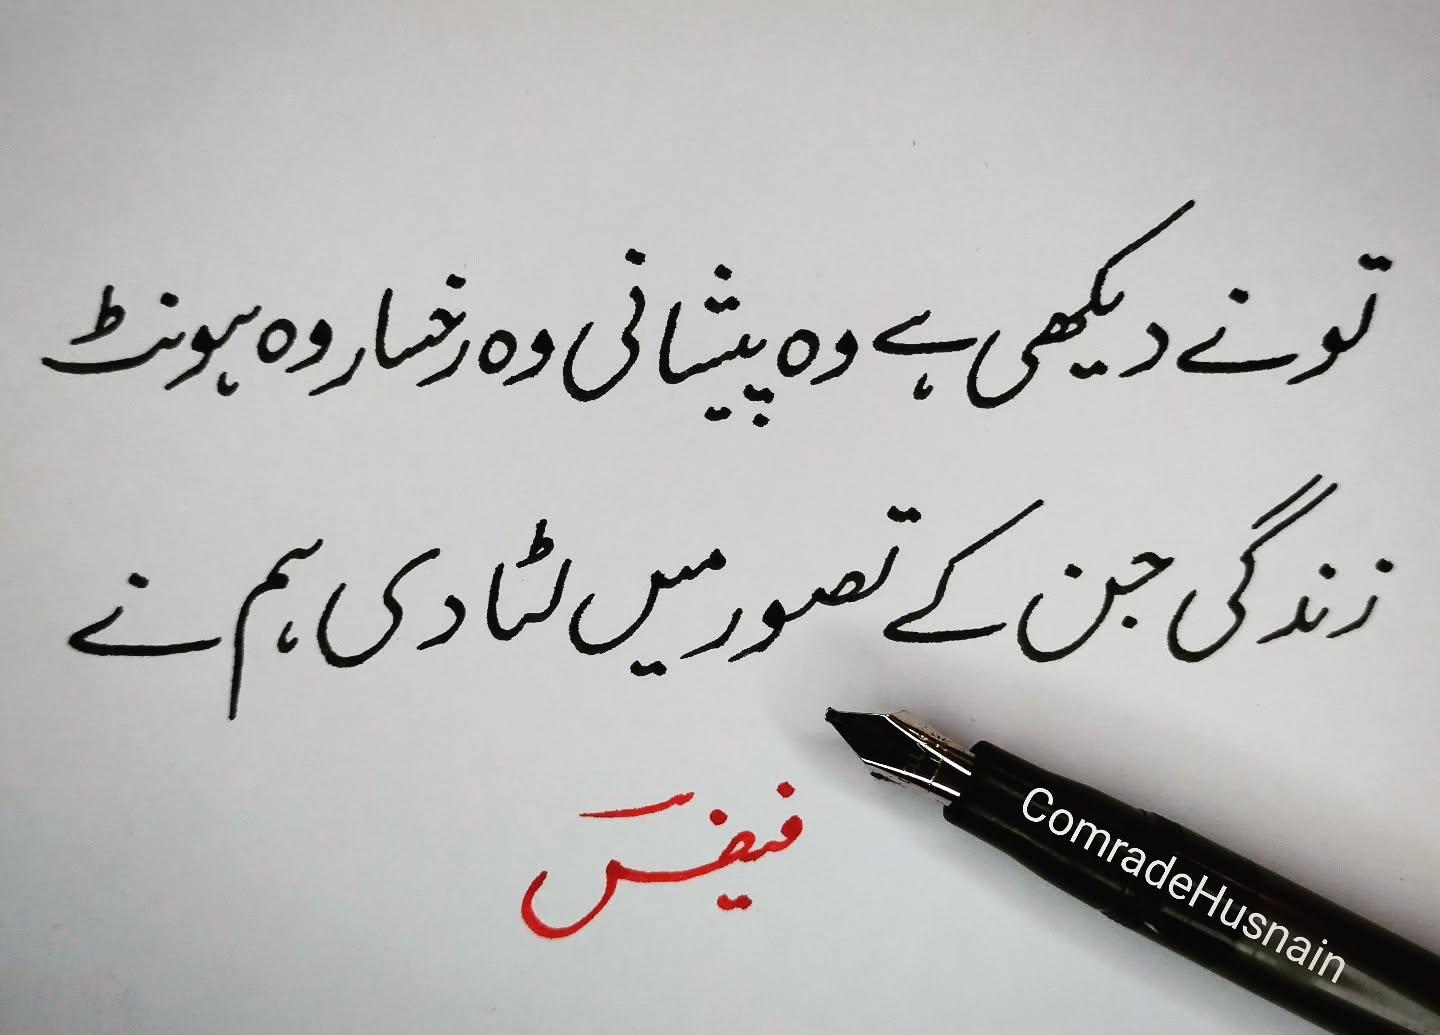 تو نے دیکھی ہے وہ پیشانی وہ رخسار وہ ہونٹ
زندگی جن کے تصور میں لٹا دی ہم نے
فیضؔ
ComradeHusnain